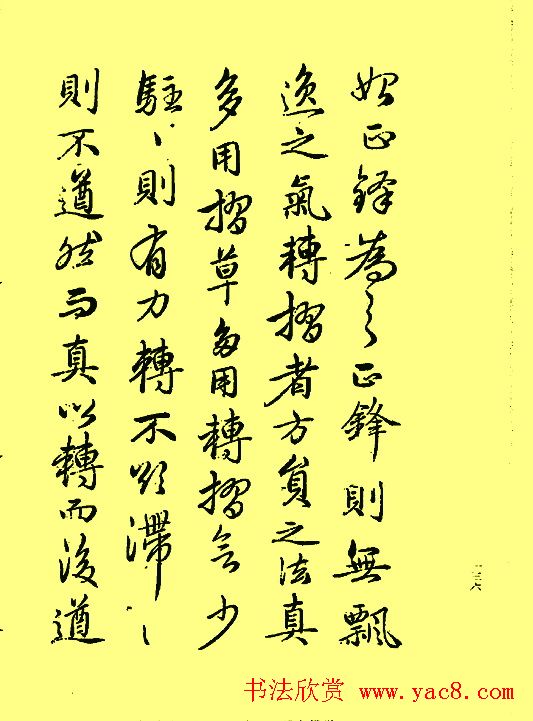 正鋒為之正鋒則無飄
逸之氣轉摺者方員之法真
多用摺草多用轉摺欲少
駐丶則有力轉不欲滯丶
則不遒然而真以轉而後遒
书法欣赏 www.yac8.com